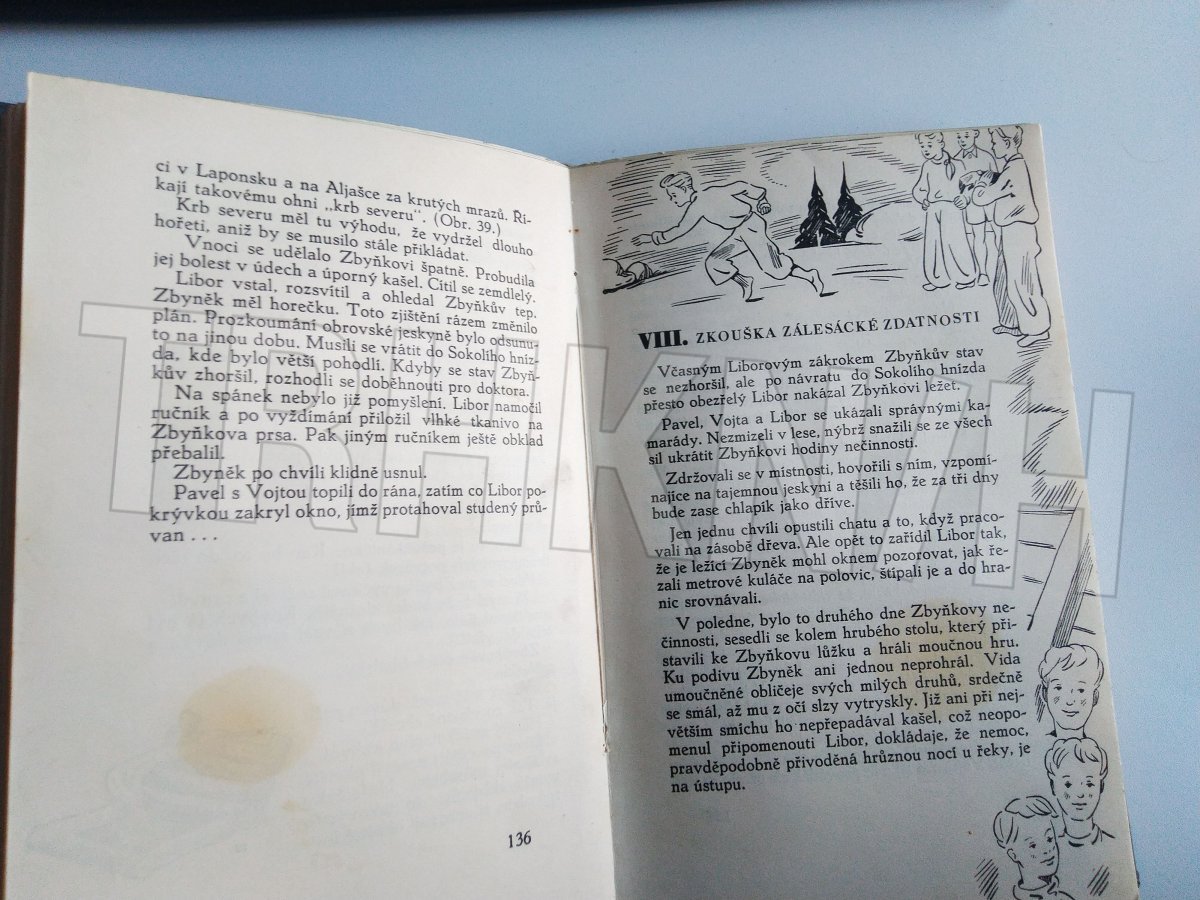 ci v Laponsku a na Aljašce za krutých mrazů. Ří-
kají takovému ohni „krb severu". (Obr. 39.)
Krb severu měl tu výhodu, že vydržel dlouho
hořeti, aniž by se musilo stále přikládat.
Vnoci se udělalo Zbyňkovi špatně. Probudila
jej bolest v údech a úporný kašel. Cítil se zemdlelý.
Libor vstal, rozsvítil a ohledal Zbyňkův tep.
Zbyněk měl horečku. Toto zjištění rázem změnilo
plán. Prozkoumání obrovské jeskyně bylo odsunu-
to na jinou dobu. Musili se vrátit do Sokolího hníz-
da, kde bylo větší pohodlí. Kdyby se stav Zbyň-
kův zhoršil, rozhodli se doběhnouti pro doktora.
Na spánek nebylo již pomyšlení. Libor namočil
ručník a po vyždímání přiložil vlhké tkanivo na
Zbyňkova prsa. Pak jiným ručníkem ještě obklad
přebalil.
Zbyněk po chvíli klidně usnul.
Pavel s Vojtou topili do rána, zatím co Libor po-
krývkou zakryl okno, jímž protahoval studený prů-
van ...
136
VIII. ZKOUŠKA ZÁLESÁCKÉ ZDATNOSTI
Včasným Liborovým zákrokem Zbyňkův stav
se nezhoršil, ale po návratu do Sokolího hnízda
přesto obezřelý Libor nakázal Zbyňkovi ležet.
Pavel, Vojta a Libor se ukázali správnými ka-
marády. Nezmizeli v lese, nýbrž snažili se ze všech
sil ukrátit Zbyňkovi hodiny nečinnosti.
Zdržovali se v místnosti, hovořili s ním, vzpomí-
najíce na tajemnou jeskyni a těšili ho, že za tři dny
bude zase chlapík jako dříve.
Jen jednu chvíli opustili chatu a to, když praco-
vali na zásobě dřeva. Ale opět to zařídil Libor tak,
že je ležící Zbyněk mohl oknem pozorovat, jak ře-
zali metrové kuláče na polovic, štípali je a do hra-
nic srovnávali.
V poledne, bylo to druhého dne Zbyňkovy ne-
činnosti, sesedli se kolem hrubého stolu, který při-
stavili ke Zbyňkovu lůžku a hráli moučnou hru.
Ku podivu Zbyněk ani jednou neprohrál. Vida
umoučněné obličeje svých milých druhů, srdečně
se smál, až mu z očí slzy vytryskly. Již ani při nej-
větším smíchu ho nepřepadával kašel, což neopo-
menul připomenouti Libor, dokládaje, že nemoc,
pravděpodobně přivoděná hrůznou nocí u řeky, je
na ústupu.
TRHKNIH